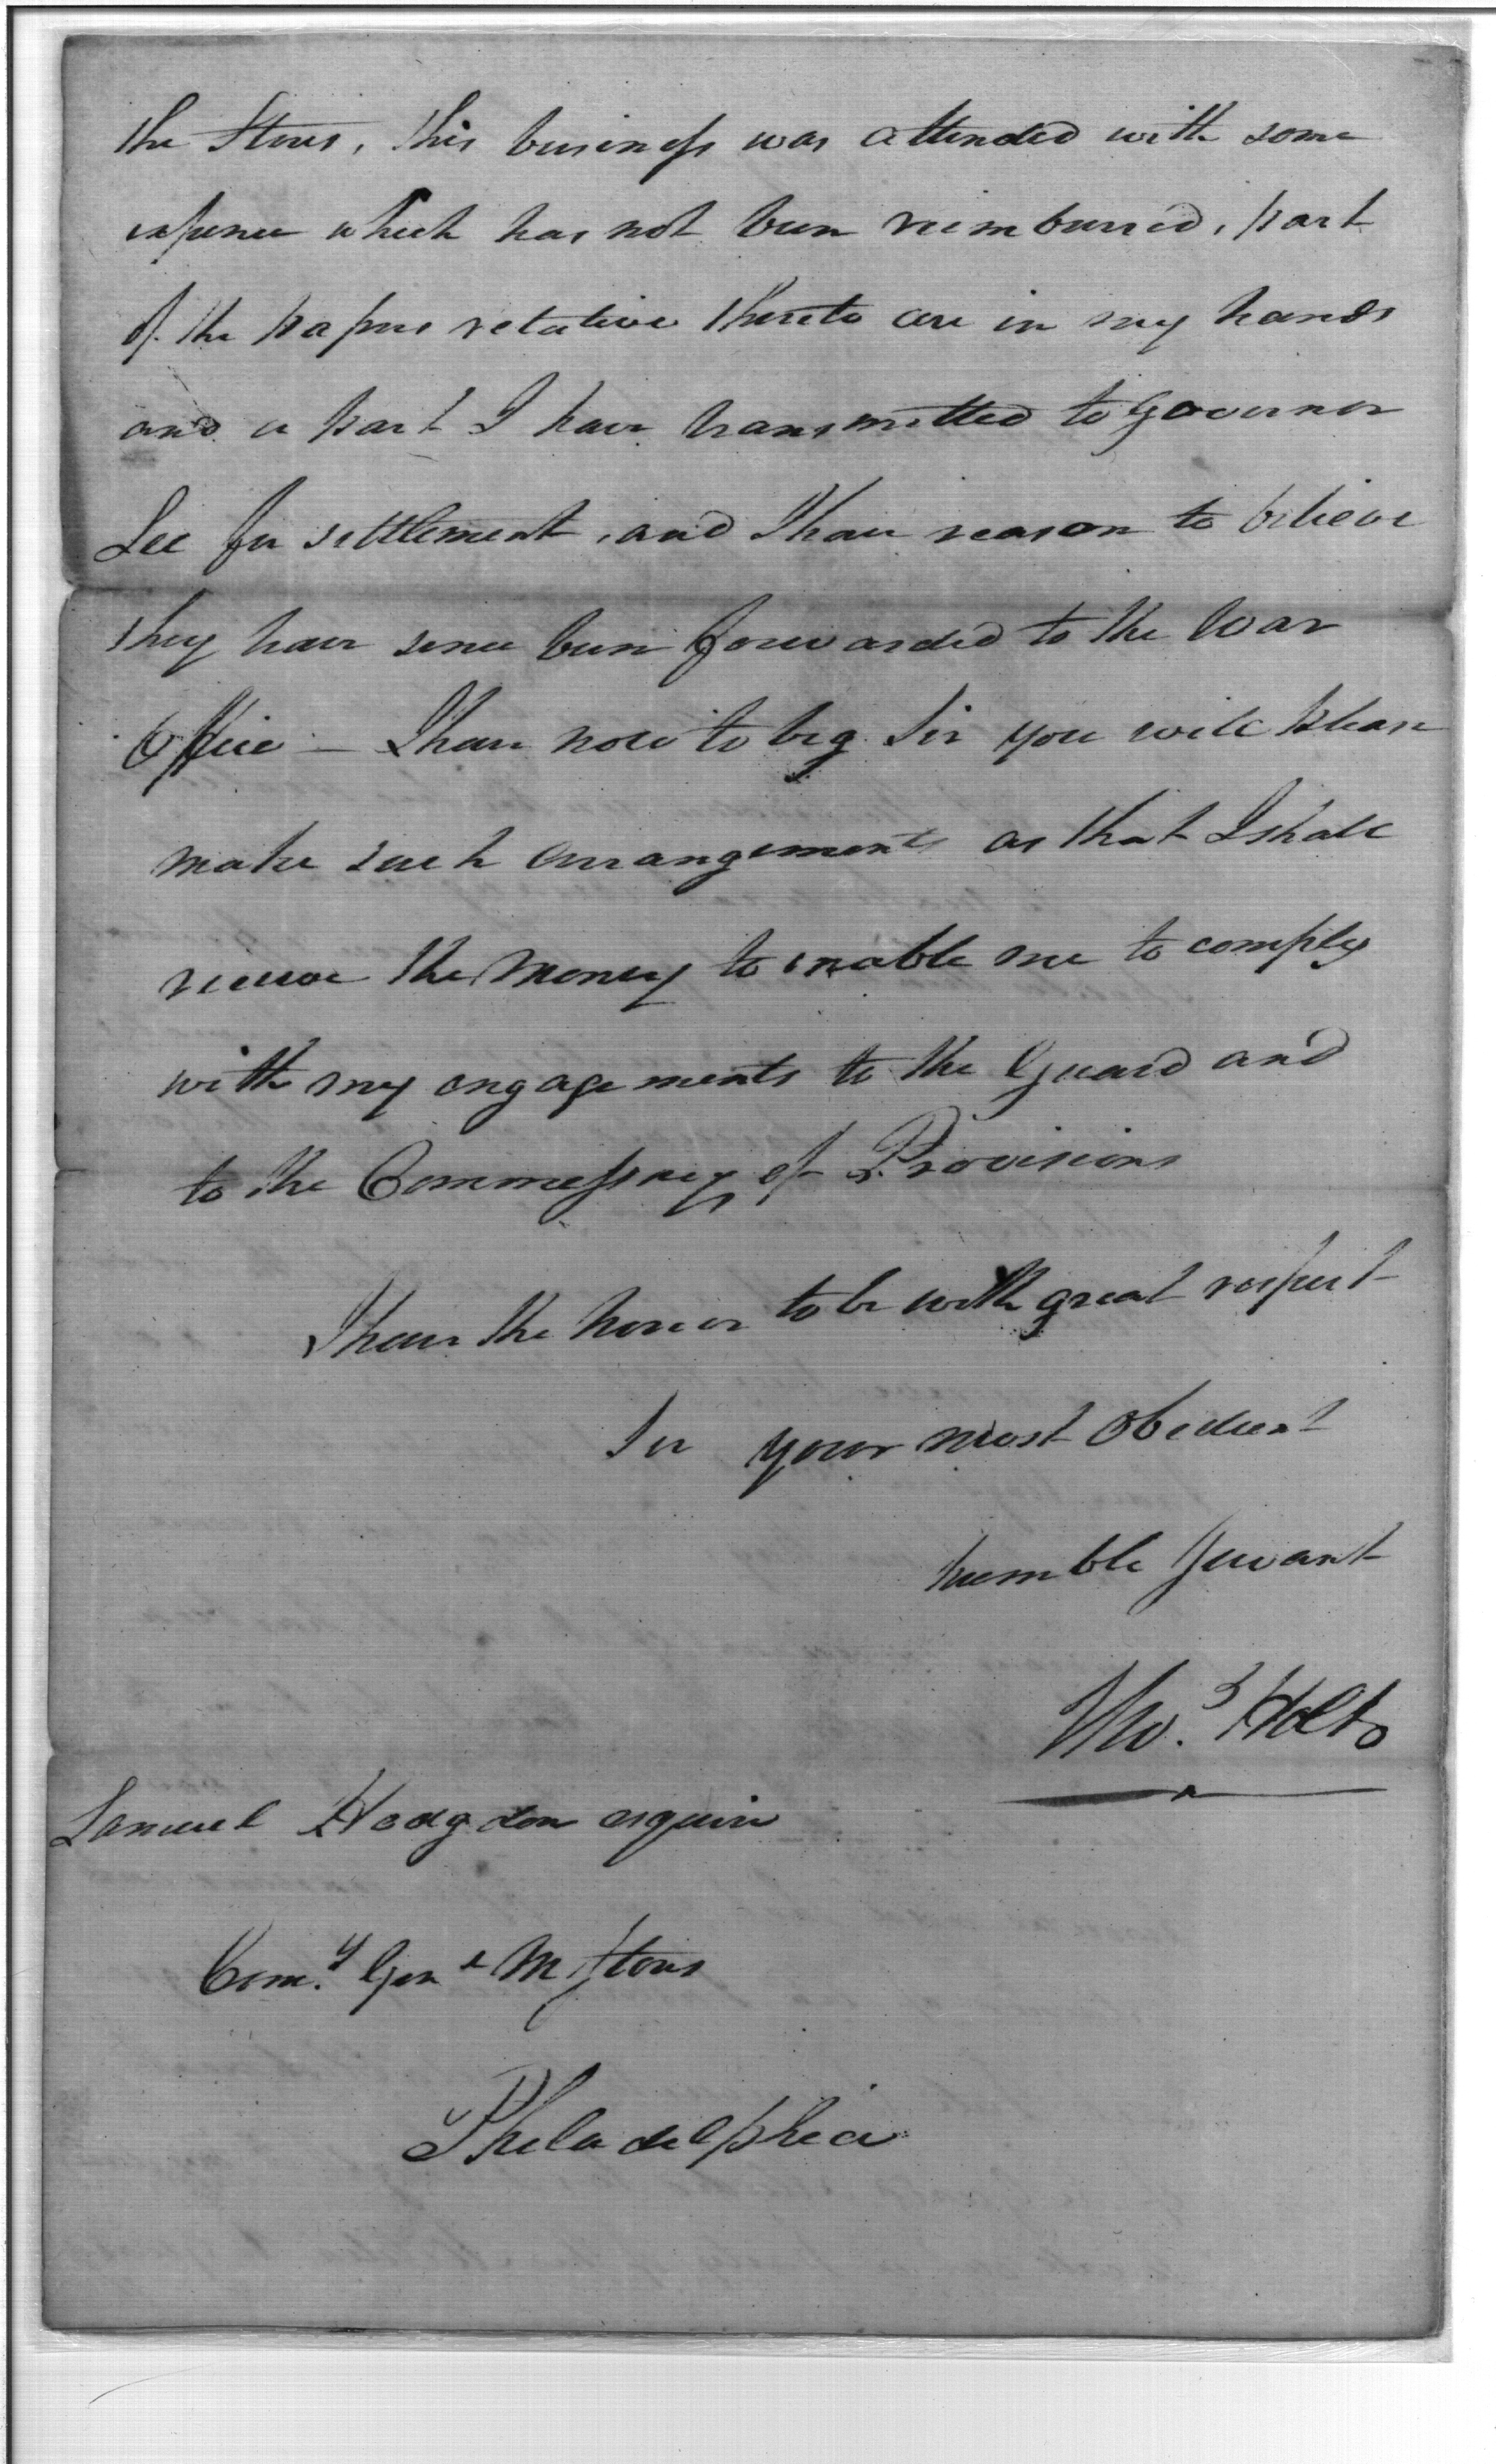 the Stores, this business was attended with some
expence which has not been reimbursed, part
of the papers relative thereto are in my hands
and a part I have transmitted to Governor
Lee for settlement, and I have reason to believe
they have since been forwarded to the War
Office — I have now to beg Sir you will please
make such arrangements as that I shall
receive the Money to enable me to comply
with my engagements to the Guard and
to the Commessary of Provisions
I have the honor to be with great respect
Sir your most Obedient
humble Servant
Tho.s Holt
Samuel Hodgdon esquire
Com.y Gen l M Stores
Philadelphia